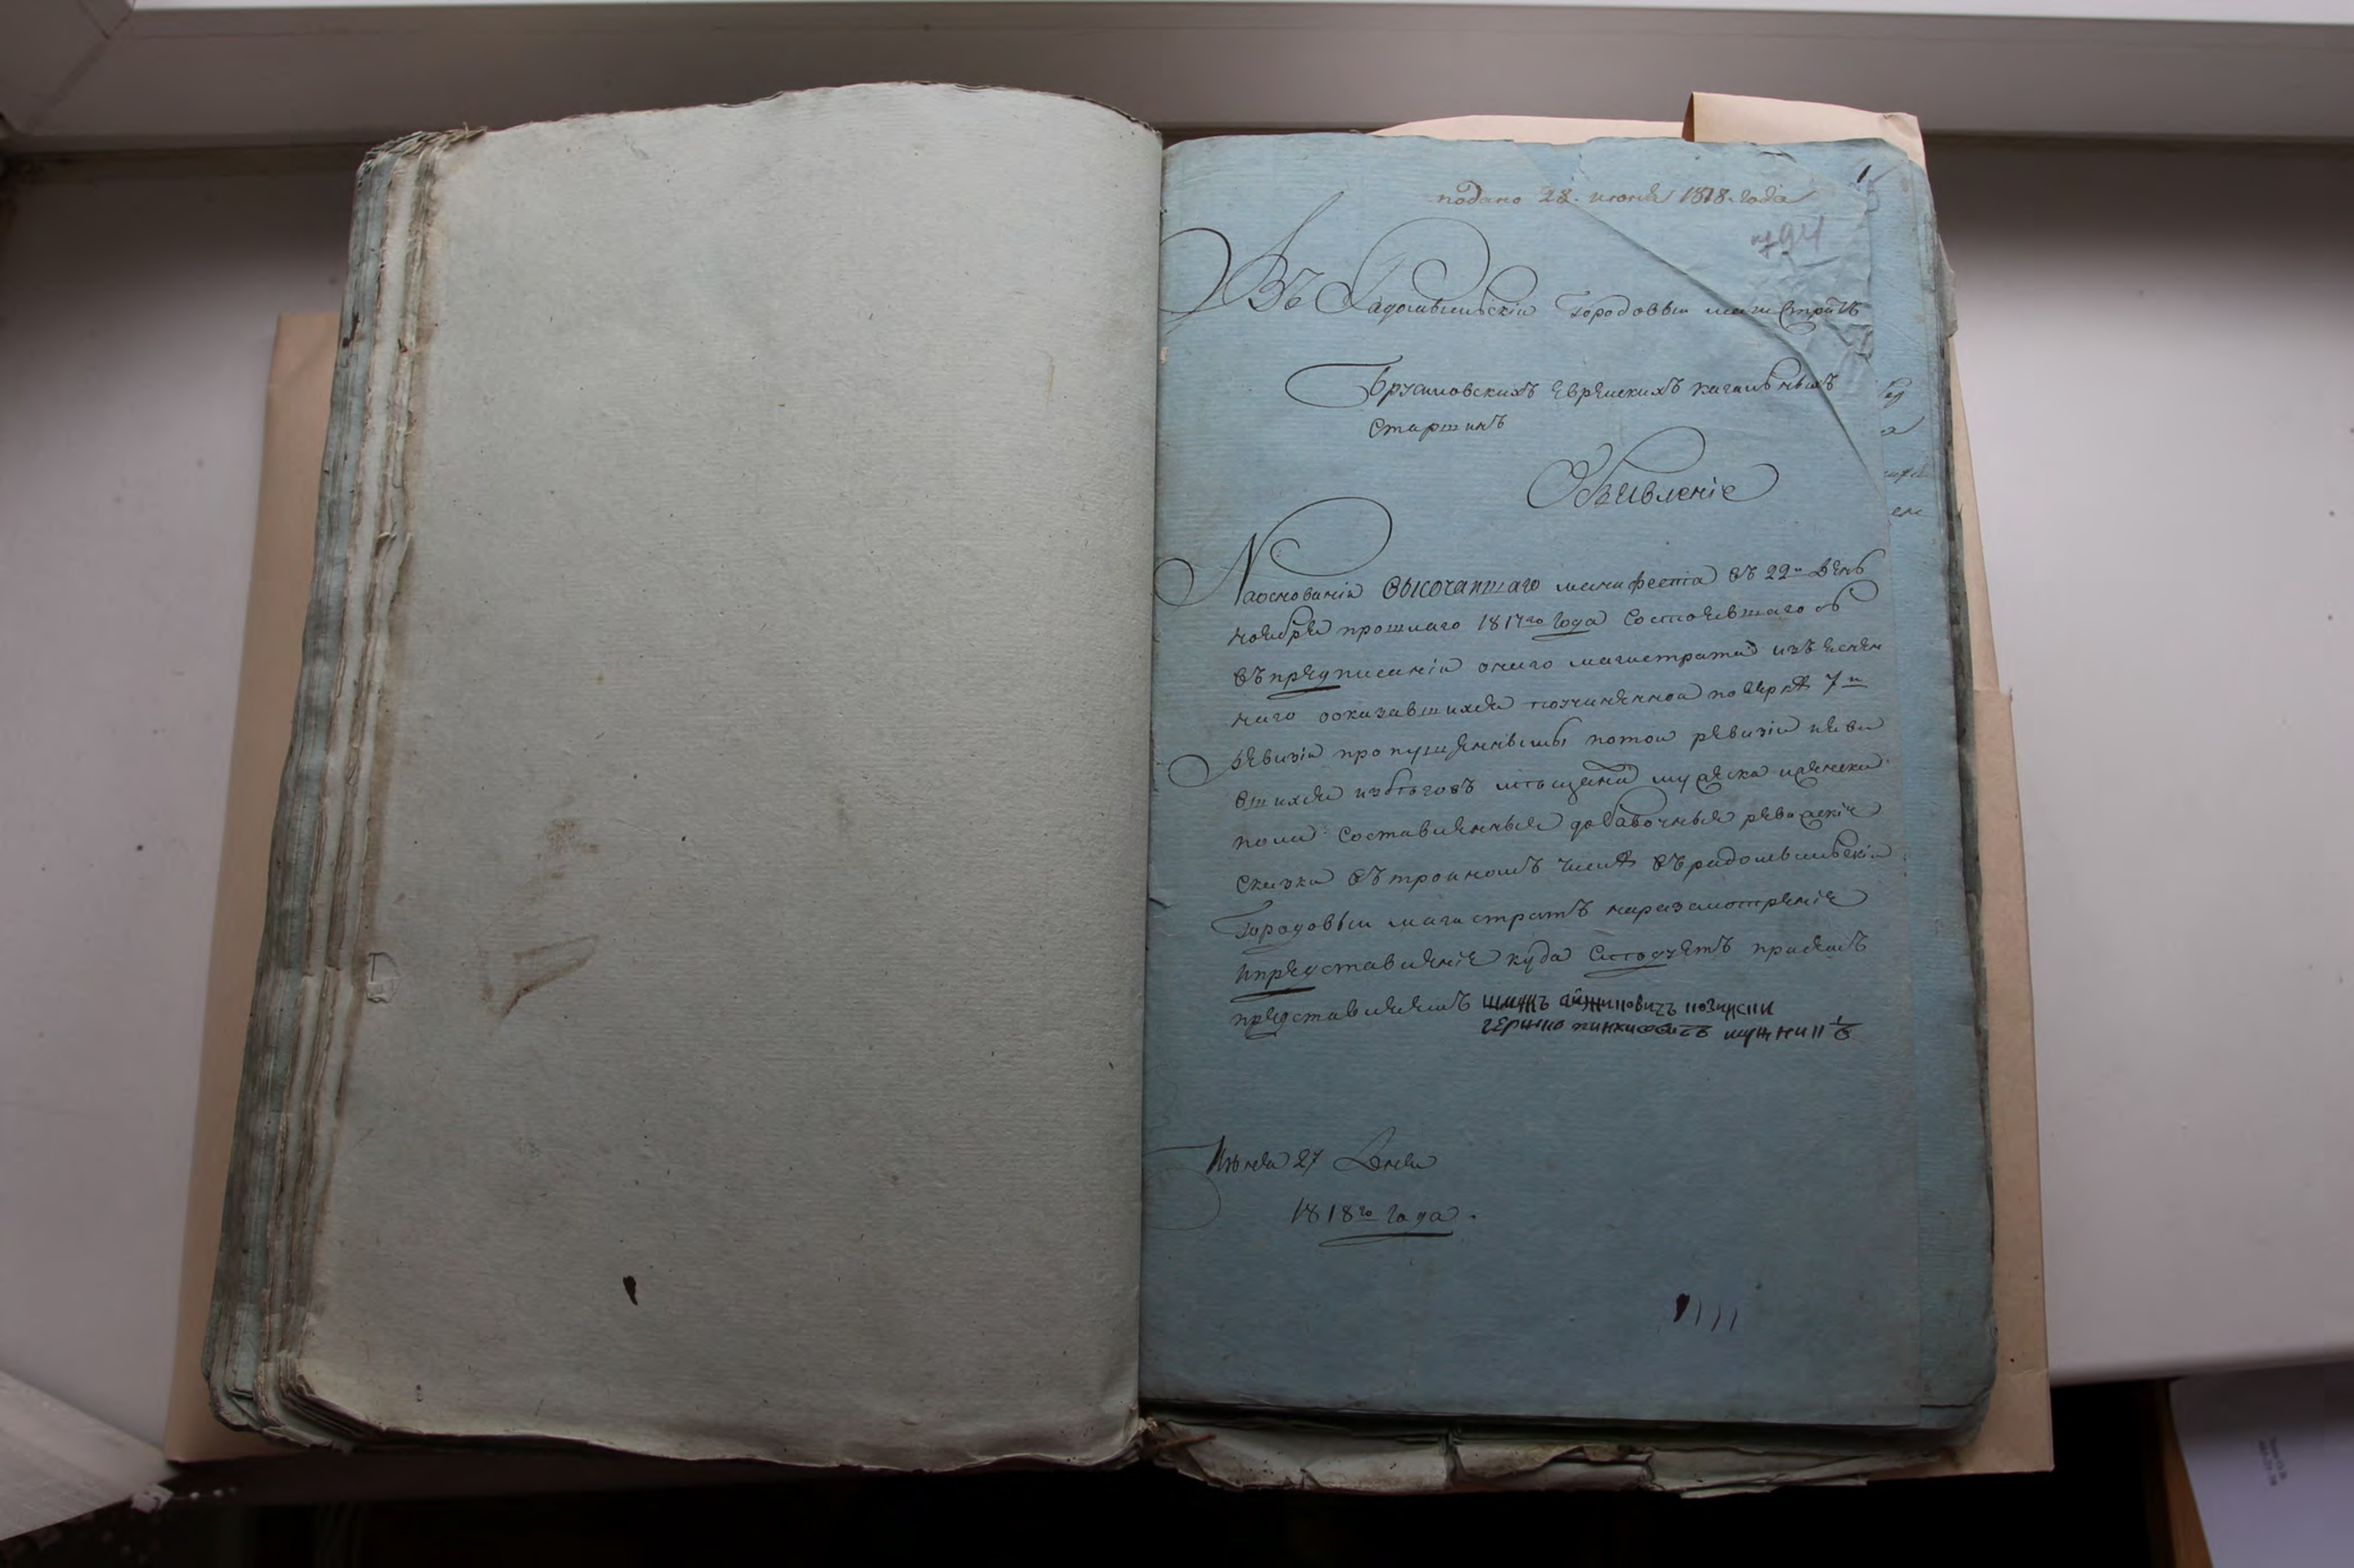 подано 28. июня 1818. года
1
794
Въ Радомысльскій Городовый магистратъ
Брусиловскихъ Еврейскихъ кагальныхъ
Старшинъ
Объявленіе
На основаніи Высочайшаго манифеста въ 22й День
ноября прошлаго 1817го Года Состоявшаго
въ предписаніи онаго магистрата
наго оказавшихся поверкѣ 7й
ревизіи пропущенными потой ревизіи
вшихся избѣговъ мѣщанъ мужеска иженска
пола Составленныя добавочныя ревизскіе
Сказки въ тройномъ числѣ въ радомысльскій
Городовый магистратъ наразсмотреніе
ипредставленіе куда Слѣдуетъ при семъ
представляемъ
Июня 27 Дня
1818го Года.